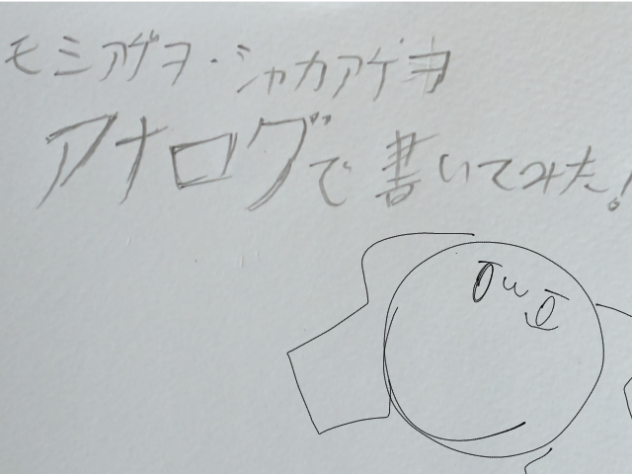 モミアゲヲ・シャカアゲヲ
アナログで書いてみた!